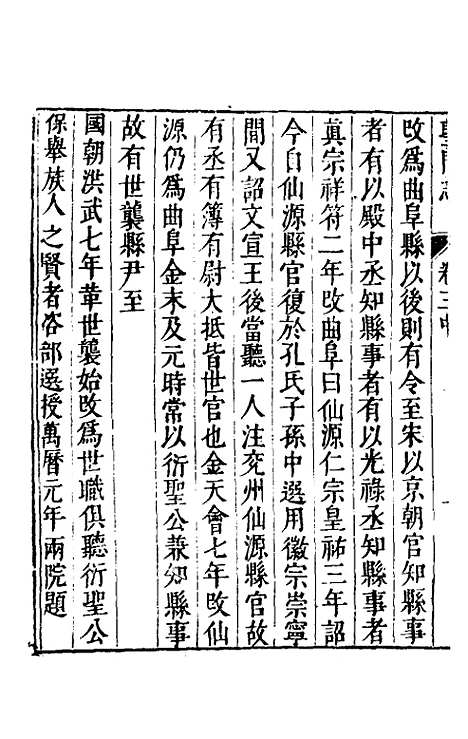 聖門志 卷三中
改爲曲阜縣以後則有令至宋以京朝官知縣事
者有以殿中丞知縣事者有以光祿丞知縣事者
眞宗祥符二年改曲阜曰仙源仁宗皇祐三年詔
今自仙源縣官復於孔氏子孫中選用徽宗崇寧
間又詔文宣王後當聽一人注兗州仙源縣官故
有丞有簿有尉大抵皆世官也金天會七年改仙
源仍爲曲阜金末及元時常以衍聖公兼知縣事
故有世襲縣尹至
國朝洪武七年革世襲始改爲世職俱聽衍聖公
保舉族人之賢者咨部選授萬曆元年兩院題